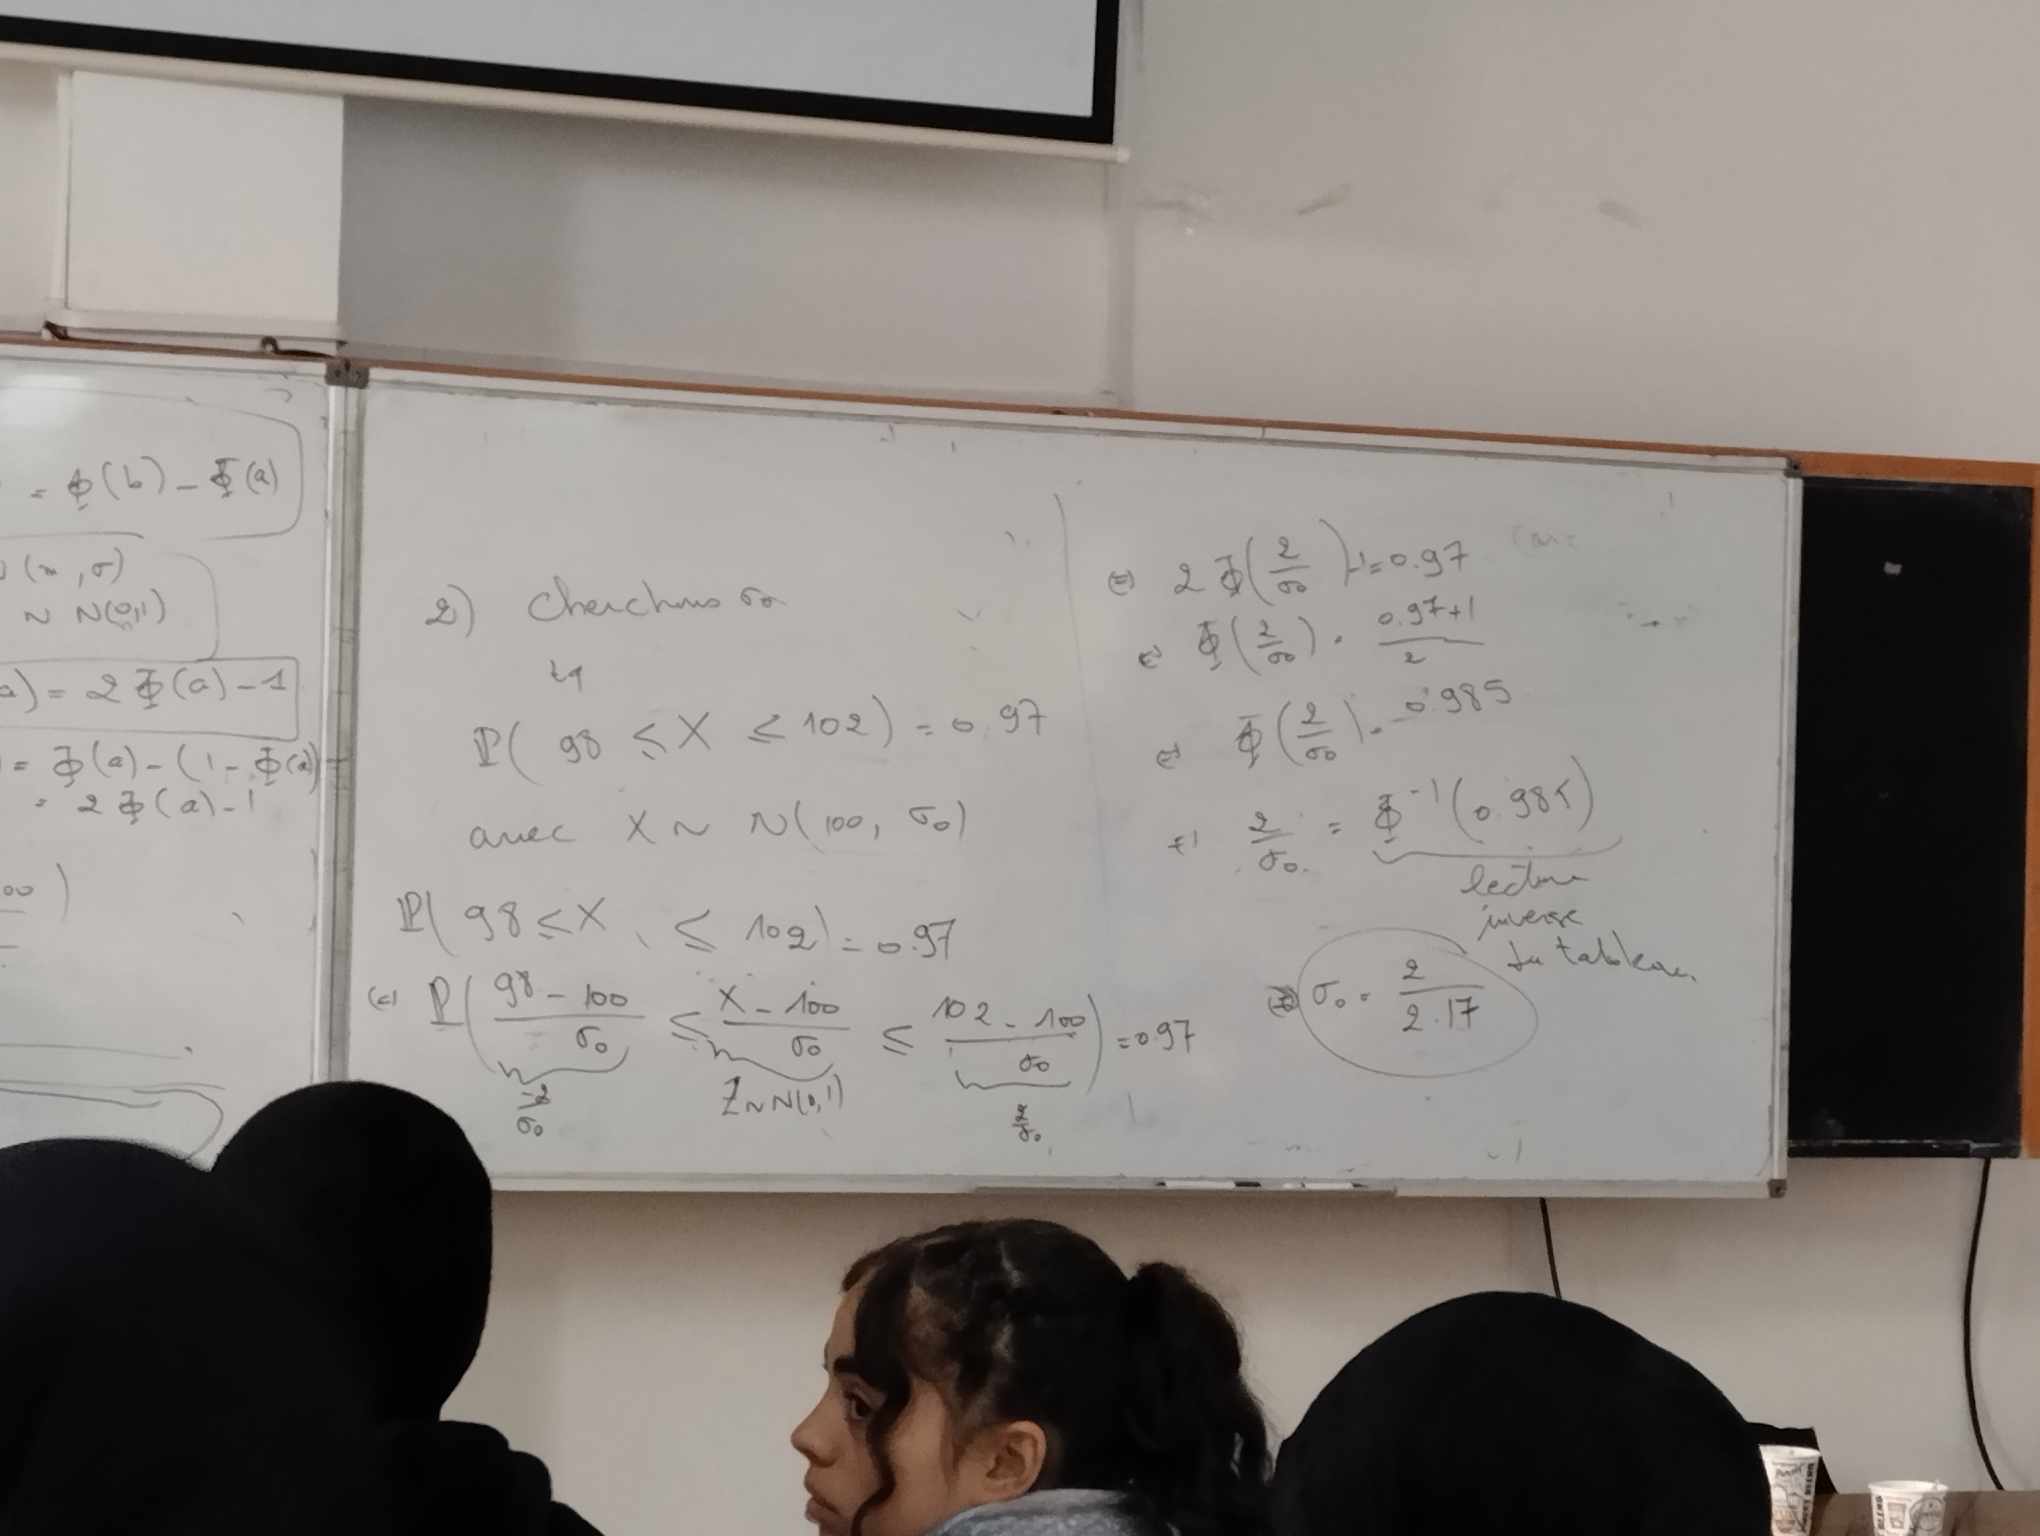 = Φ(b) - Φ(a)
(m, σ)
~ N(0,1)
a) = 2Φ(a) - 1
= Φ(a) - (1 - Φ(a))
= 2Φ(a) - 1
2) Cherchons σ₀
tq
P( 98 ≤ X ≤ 102 ) = 0.97
avec X ~ N(100, σ₀)
P( 98 ≤ X ≤ 102 ) = 0.97
(=) P( (98 - 100)/σ₀ ≤ (X - 100)/σ₀ ≤ (102 - 100)/σ₀ ) = 0.97
-2/σ₀ Z ~ N(0,1) 2/σ₀
(=) 2Φ(2/σ₀) - 1 = 0.97
(=) Φ(2/σ₀) = (0.97+1)/2
(=) Φ(2/σ₀) = 0.985
(=) 2/σ₀ = Φ⁻¹(0.985)
lecture
inverse
du tableau.
σ₀ = 2/2.17